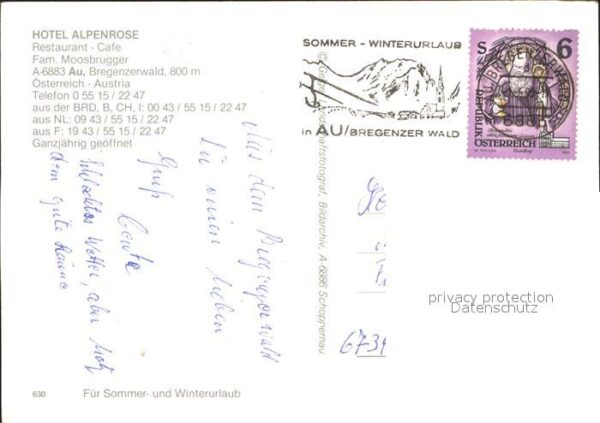 HOTEL ALPENROSE
Restaurant - Cafe
Fam. Moosbrugger
A-6883 Au, Bregenzerwald, 800 m
Österreich - Austria
Telefon 0 55 15 / 22 47
aus der BRD, B, CH, I: 00 43 / 55 15 / 22 47
aus NL: 09 43 / 55 15 / 22 47
aus F: 19 43 / 55 15 / 22 47
Ganzjährig geöffnet
SOMMER - WINTERURLAUB
in AU/BREGENZER WALD
S 6
REPUBLIK
ÖSTERREICH
Aus dem Bregenzerwald
einen lieben
Gruß
Schlechtes Wetter, aber trotz
dem gute Laune
Bildarchiv, A-6886 Schoppernau
6734
privacy protection
Datenschutz
630 Für Sommer- und Winterurlaub